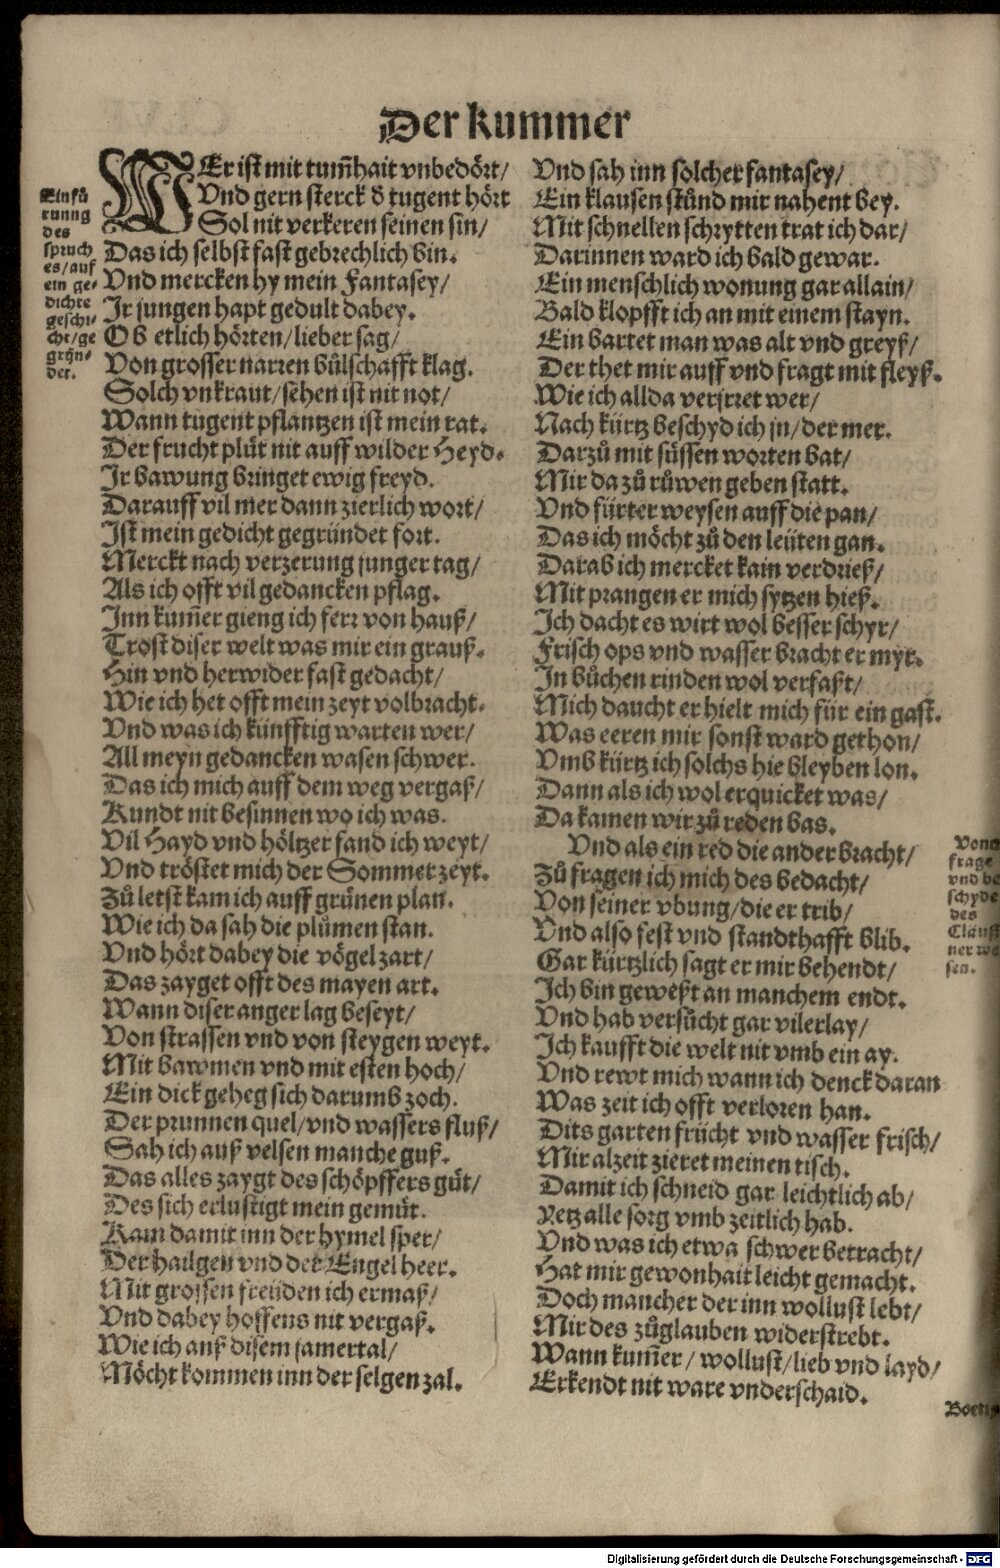 Der kummer
Einfü
rung
des
spruch
es/auf
ein ge⸗
dichte
geschi⸗
cht/ge
grün⸗
det.
WEr ist mit tum̃hait vnbedört/
Vnd gern sterck d̕ tugent hört
Sol nit verkeren seinen sin/
Das ich selbst fast gebrechlich bin.
Vnd mercken hy mein Fantasey/
Ir jungen hapt gedult dabey.
Ob etlich hörten/lieber sag/
Von grosser narren bůlschafft klag.
Solch vnkraut/sehen ist nit not/
Wann tugent pflantzen ist mein rat.
Der frucht plüt nit auff wilder Heyd.
Ir bawung bringet ewig freyd.
Darauff vil mer dann zierlich wort/
Ist mein gedicht gegründet fort.
Merckt nach verzerung junger tag/
Als ich offt vil gedancken pflag.
Inn kum̃er gieng ich ferr von hauß/
Trost diser welt was mir ein grauß.
Hin vnd herwider fast gedacht/
Wie ich het offt mein zeyt volbracht.
Vnd was ich künfftig warten wer/
All meyn gedancken wasen schwer.
Das ich mich auff dem weg vergaß/
Kundt nit besinnen wo ich was.
Vil Hayd vnd höltzer fand ich weyt/
Vnd tröstet mich der Sommer zeyt.
Zů letst kam ich auff grünen plan.
Wie ich da sah die plůmen stan.
Vnd hört dabey die vögel zart/
Das zayget offt des mayen art.
Wann diser anger lag beseyt/
Von strassen vnd von steygen weyt.
Mit bawmen vnd mit esten hoch/
Ein dick geheg sich darumb zoch.
Der prunnen quel/vnd wassers fluß/
Sah ich auß velsen manche guß.
Das alles zaygt des schöpffers güt/
Des sich erlustigt mein gemüt.
Kam damit inn der hymel sper/
Der hailgen vnd der Engel heer.
Mit grossen freüden ich ermaß/
Vnd dabey hoffens nit vergaß.
Wie ich auß disem jamertal/
Möcht kommen inn der selgen zal.
Vnd sah inn solcher fantasey/
Ein klausen stůnd mir nahent bey.
Mit schnellen schrytten trat ich dar/
Darinnen ward ich bald gewar.
Ein menschlich wonung gar allain/
Bald klopfft ich an mit einem stayn.
Ein bartet man was alt vnd greyß/
Der thet mir auff vnd fragt mit fleyß.
Wie ich allda verjrret wer/
Nach kürtz beschyd ich jn/der mer.
Darzů mit süssen worten bat/
Mir da zů růwen geben statt.
Vnd fürter weysen auff die pan/
Das ich möcht zů den leüten gan.
Darab ich mercket kain verdrieß/
Mit prangen er mich sytzen hieß.
Ich dacht es wirt wol besser schyr/
Frisch ops vnd wasser bracht er myr.
In bůchen rinden wol verfaßt/
Mich daucht er hielt mich für ein gast.
Was eeren mir sonst ward gethon/
Vmb kürtz ich solchs hie bleyben lon.
Dann als ich wol erquicket was/
Da kamen wir zů reden bas.
Vnd als ein red die ander bracht/
Zů fragen ich mich des bedacht/
Von seiner vbung/die er trib/
Vnd also fest vnd standthafft blib.
Gar kürtzlich sagt er mir behendt/
Ich bin geweßt an manchem endt.
Vnd hab versůcht gar vilerlay/
Ich kaufft die welt nit vmb ein ay.
Vnd rewt mich wann ich denck daran
Was zeit ich offt verloren han.
Dits garten frücht vnd wasser frisch/
Mir alzeit zieret meinen tisch.
Damit ich schneid gar leichtlich ab/
Yetz alle sorg vmb zeitlich hab.
Vnd was ich etwa schwer betracht/
Hat mir gewonhait leicht gemacht.
Doch mancher der inn wollust lebt/
Mir des zůglauben widerstrebt.
Wann kum̃er/wollust/lieb vnd layd/
Erkendt nit ware vnderschaid.
Von
frage
vnd be
schyde
des
Clauß
ner we
sen.
Boeti
Digitalisierung gefördert durch die Deutsche Forschungsgemeinschaft - DFG